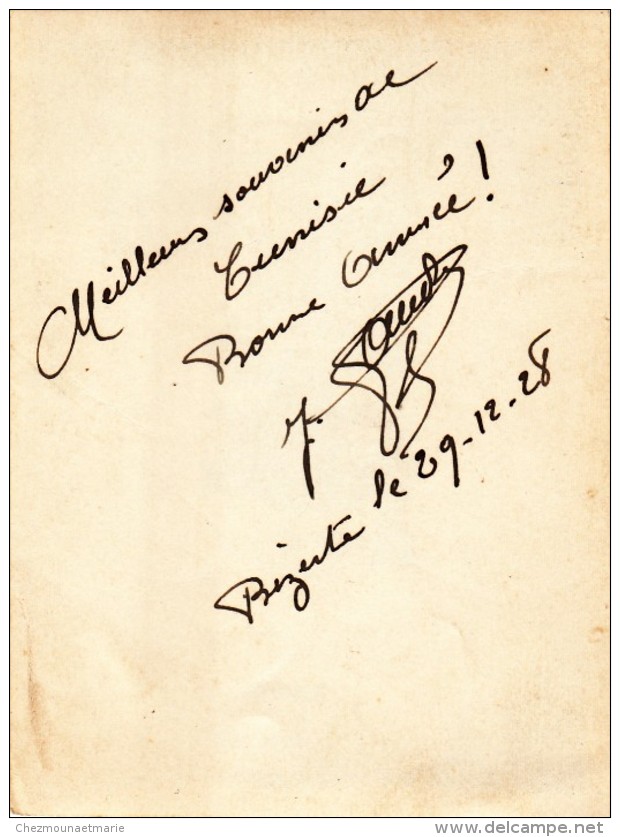 Meilleurs souvenirs de
Tunisie
Bonne Année!
J.
Bizerte le 29-12-28
Chezmounaetmarie
www.delcampe.net